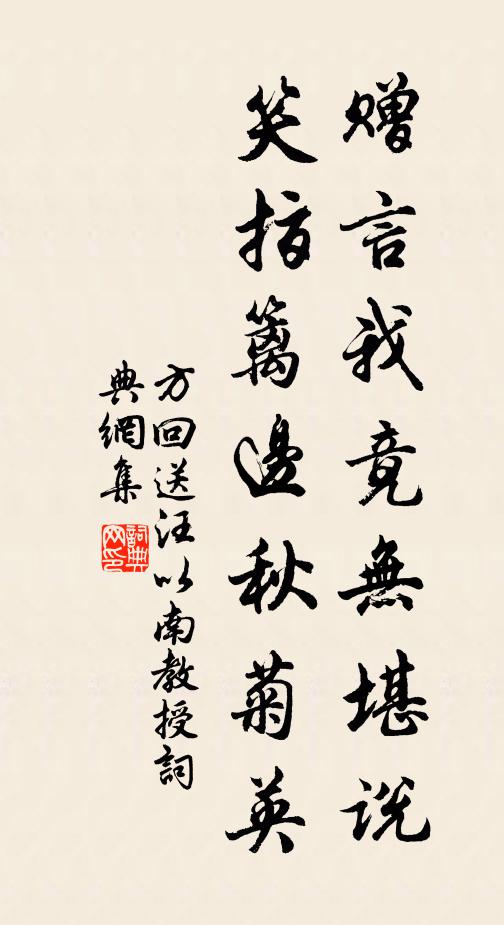 贈言我竟無堪说
笑指籬邊秋菊英
方回送汪以南教授詞
典網集
詞典網印